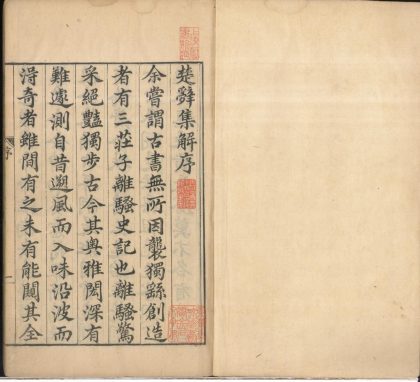 楚辭集解序
余嘗謂古書無所因襲獨繇創造
者有三莊子離騷史記也離騷驚
采絕豔獨步古今其奧雅閎深有
難遽測自昔遡風而入味沿波而
淂奇者雖間有之未有能闚其全
序
一